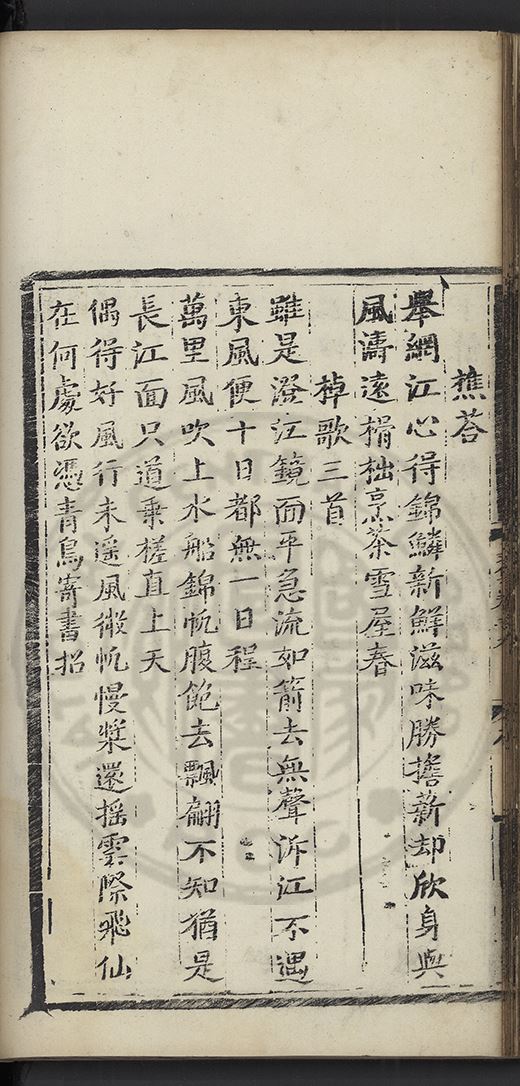 樵荅
舉網江心得錦鱗新鮮滋味勝擔薪却欣身與
風濤遠榾柮烹茶雪屋春
棹歌三首
雖是澄江鏡面平急流如箭去無聲泝江不遇
東風便十日都無一日程
萬里風吹上水船錦帆腹飽去飄翩不知猶是
長江面只道乗槎直上天
偶得好風行未遥風微帆慢槳還摇雲際飛仙
在何處欲憑青鳥寄書招